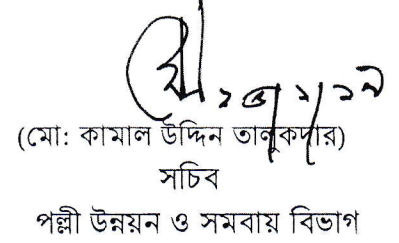 (মো: কামাল উদ্দিন তালুকদার)
সচিব
পল্লী উন্নয়ন ও সমবায় বিভাগ